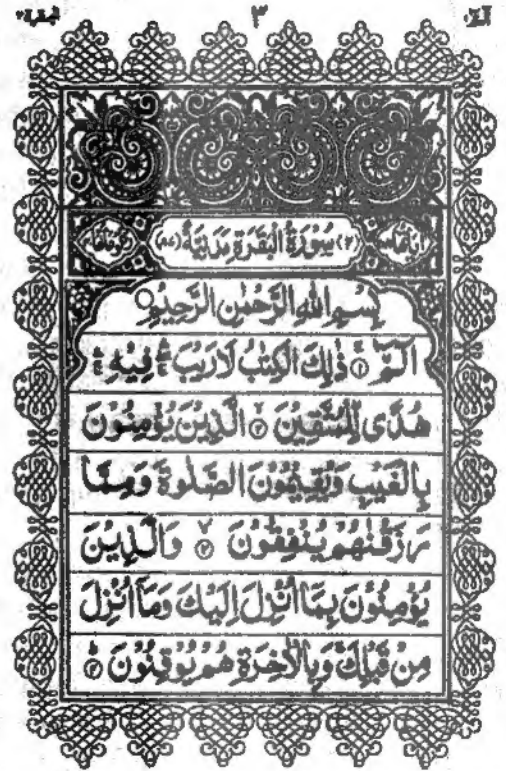 البقرة ٢ ٣ الٓمّ ١
(٢) سُوْرَةُ الْبَقَرَةِ مَدَنِيَّةٌ (٨٧)
بِسْمِ اللّٰهِ الرَّحْمٰنِ الرَّحِيْمِ
الٓمّٓ ۚ ﴿١﴾ ذٰلِكَ الْكِتٰبُ لَا رَيْبَ ۛۖ فِيْهِ ۛۚ
هُدًى لِّلْمُتَّقِيْنَ ۙ﴿٢﴾ الَّذِيْنَ يُؤْمِنُوْنَ
بِالْغَيْبِ وَيُقِيْمُوْنَ الصَّلٰوةَ وَمِمَّا
رَزَقْنٰهُمْ يُنْفِقُوْنَ ۙ﴿٣﴾ وَالَّذِيْنَ
يُؤْمِنُوْنَ بِمَاۤ اُنْزِلَ اِلَيْكَ وَمَاۤ اُنْزِلَ
مِنْ قَبْلِكَ ۚ وَبِالْاٰخِرَةِ هُمْ يُوْقِنُوْنَ ؕ﴿٤﴾